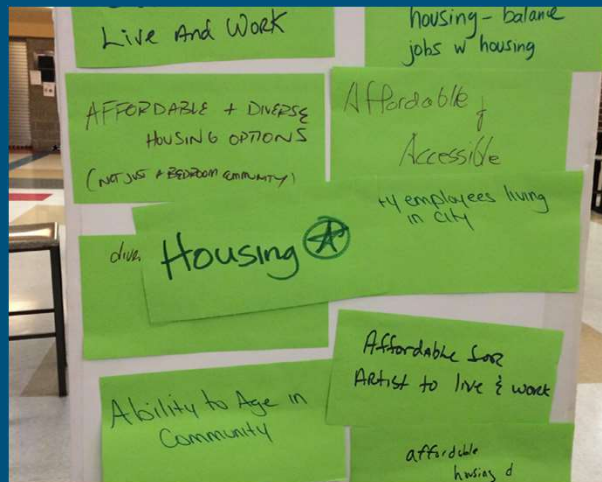 Live And Work
housing - balance
jobs w housing
AFFORDABLE + DIVERSE
HOUSING OPTIONS
(NOT JUST A BEDROOM COMMUNITY)
Affordable &
Accessible
ty employees living
in city
Housing
Affordable for
Artist to live & work
Ability to Age in
Community
affordable
housing